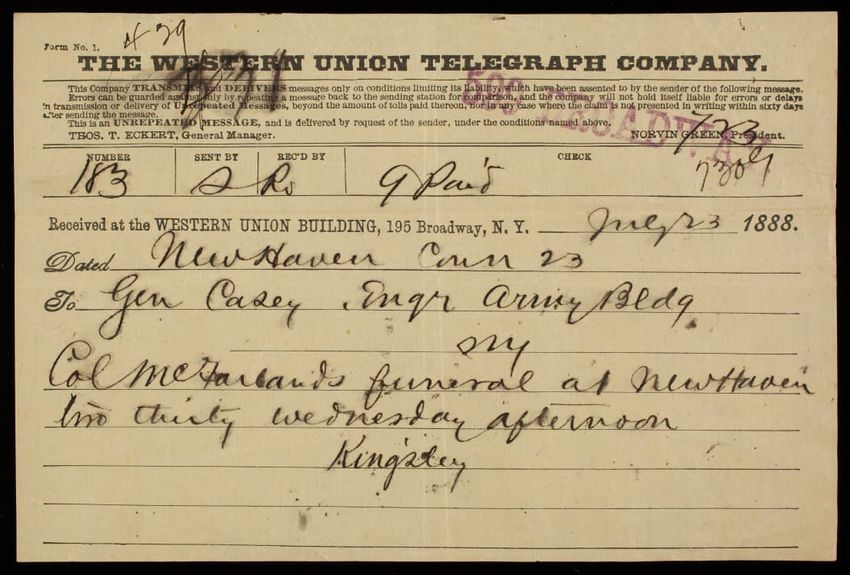 Form No. 1.
439
THE WESTERN UNION TELEGRAPH COMPANY.
This Company TRANSMITS and DELIVERS messages only on conditions limiting its liability, which have been assented to by the sender of the following message.
Errors can be guarded against only by repeating a message back to the sending station for comparison, and the Company will not hold itself liable for errors or delays
in transmission or delivery of Unrepeated Messages, beyond the amount of tolls paid thereon, nor in any case where the claim is not presented in writing within sixty days
after sending the message.
This is an UNREPEATED MESSAGE, and is delivered by request of the sender, under the conditions named above.
THOS. T. ECKERT, General Manager. NORVIN GREEN, President.
599 BROADWAY
723
NUMBER SENT BY REC'D BY CHECK
183 S Ro 9 Paid
Received at the WESTERN UNION BUILDING, 195 Broadway, N. Y. July 23 1888.
Dated New Haven Conn 23
To Gen Casey Engr Army Bldg
NY
Col McFarlands funeral at New Haven
two thirty wednesday afternoon
Kingsley